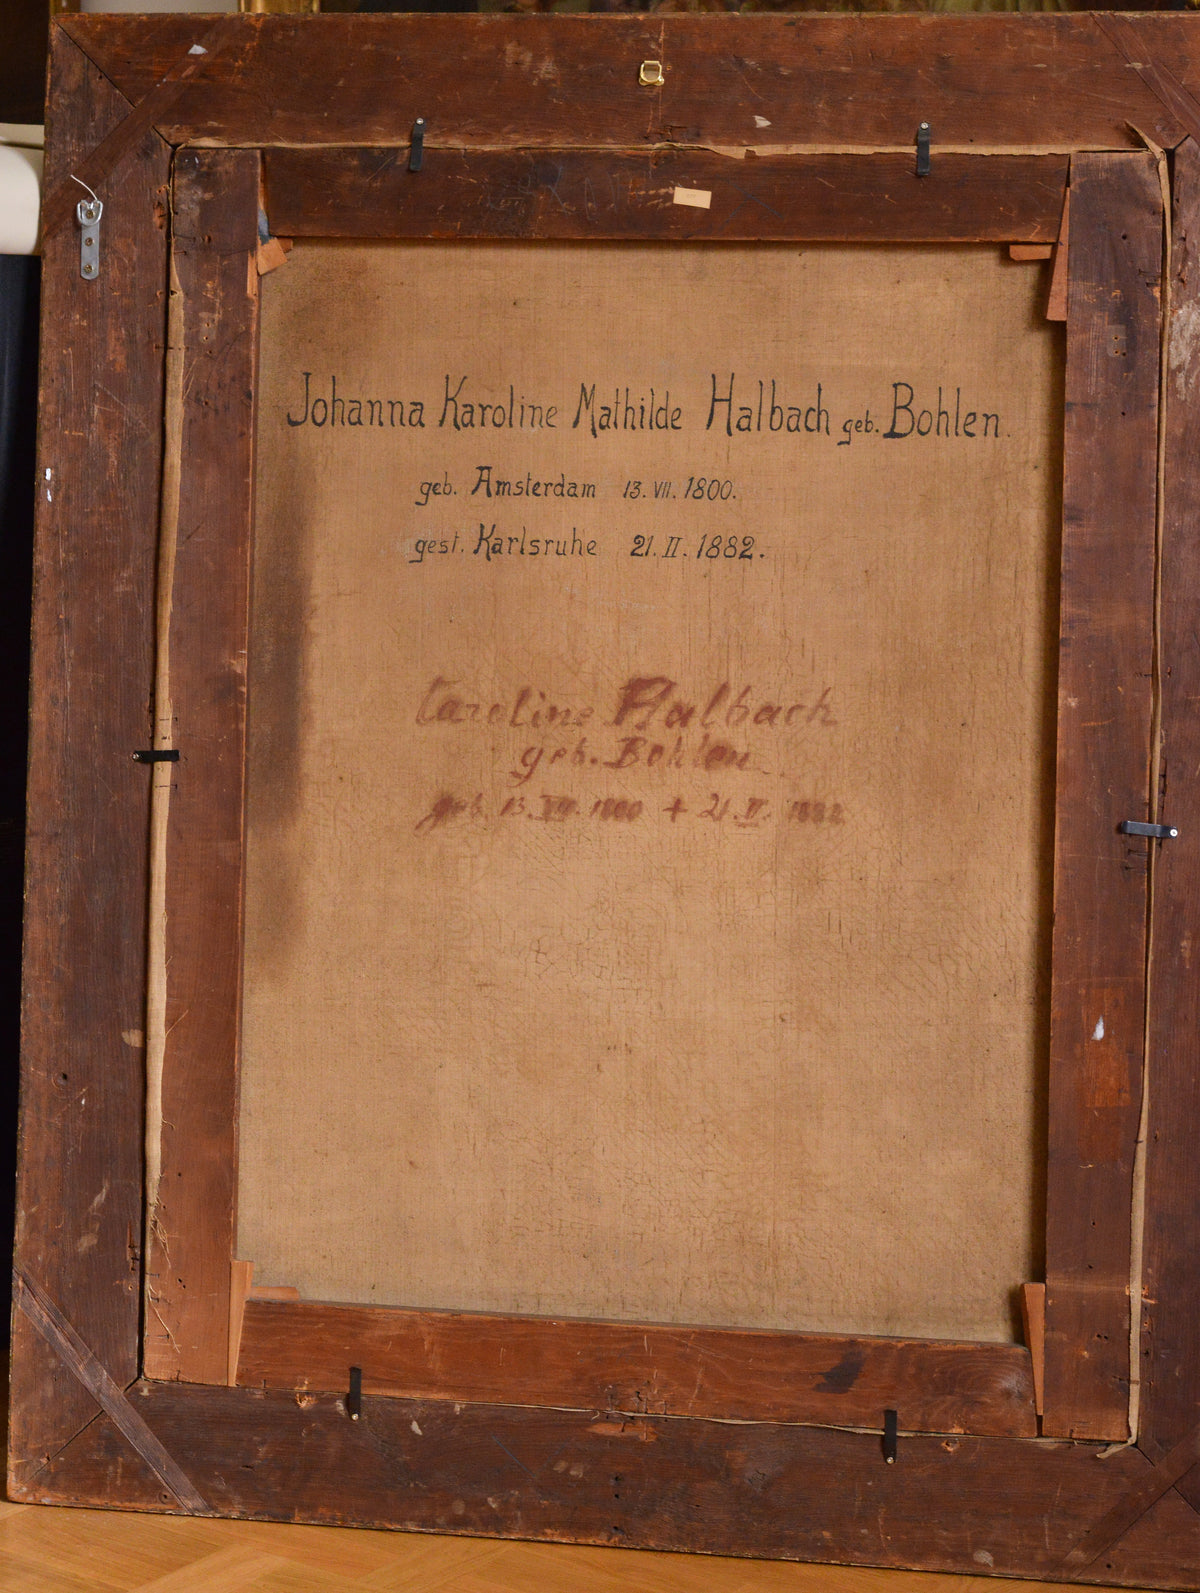 Johanna Karoline Mathilde Halbach geb. Bohlen.
geb. Amsterdam 13. VII. 1800.
gest. Karlsruhe 21. II. 1882.
Caroline Halbach
geb. Bohlen
geb. 13. VII. 1800 + 21. II. 1882